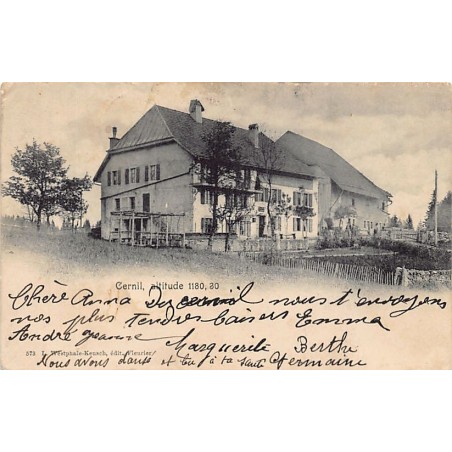 Cernil, altitude 1180, 20
Chère Anna Du cernil nous t'envoyons
nos plus tendres baisers Emma
André Jeanne Marguerite Berthe
572 L. Westphale-Kensch, édit., Fleurier
Nous avons dansé et bu à ta santé Germaine